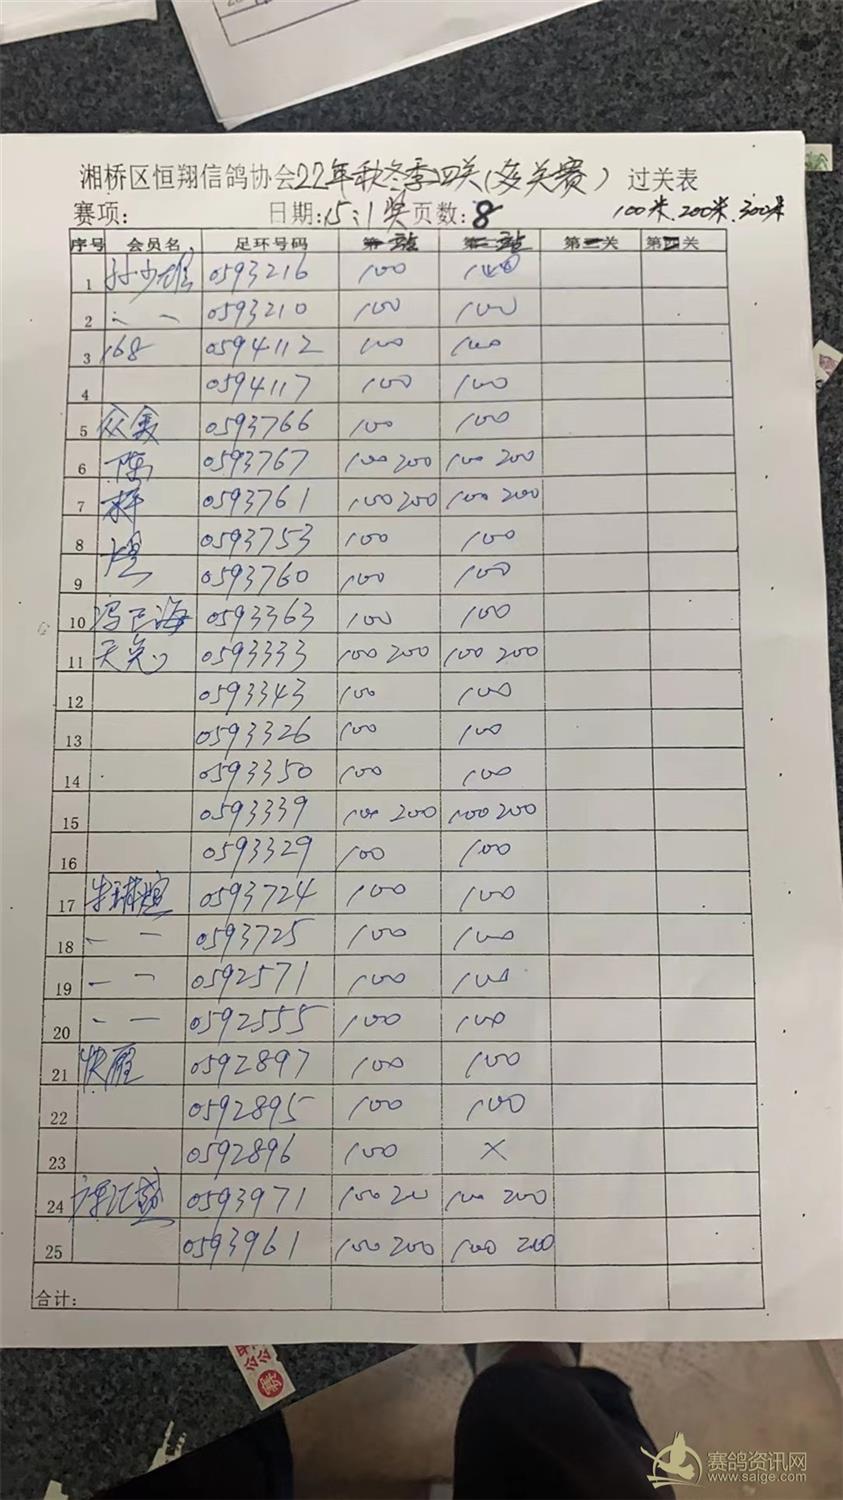 湘桥区恒翔信鸽协会22年秋冬季四关(多关赛) 过关表
赛项: 日期:15:1奖页数:8 100米.200米.300米
序号 会员名 足环号码 第一站 第二站 第三关 第四关
1 孙少雄 0593216 100 100
2 0593210 100 100
3 168 0594112 100 100
4 0594117 100 100
5 众鑫 0593766 100 100
6 陈 0593767 100 200 100 200
7 梓 0593761 100 200 100 200
8 0593753 100 100
9 煜 0593760 100 100
10 冯已海 0593363 100 100
11 0593333 100 200 100 200
12 0593343 100 100
13 0593326 100 100
14 0593350 100 100
15 0593339 100 200 100 200
16 0593329 100 100
17 0593724 100 100
18 一 一 0593725 100 100
19 一 一 0592571 100 100
20 一 一 0592555 100 100
21 快雁 0592897 100 100
22 0592895 100 100
23 0592896 100 ×
24 0593971 100 200 100 200
25 0593961 100 200 100 200
合计:
赛鸽资讯网
www.saige.com